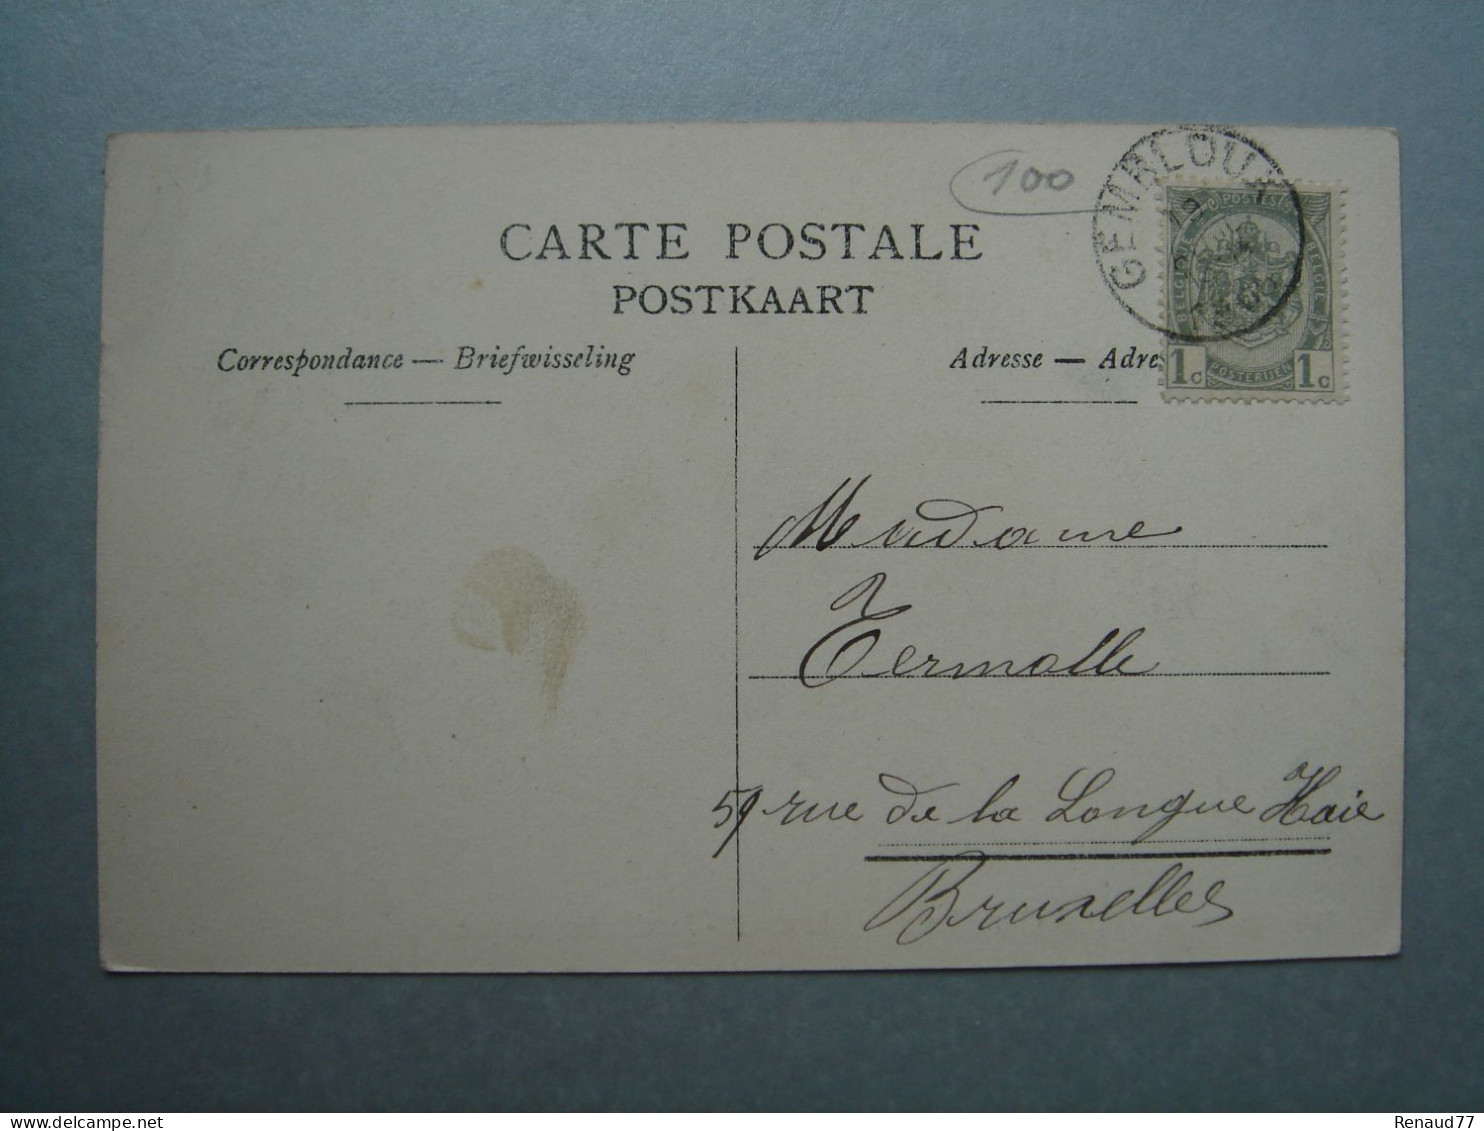 100
GEMBLOUX
CARTE POSTALE
POSTKAART
Correspondance — Briefwisseling
Adresse — Adre
POSTES
BELGIQUE
BELGIE
1c POSTERIJEN 1c
Madame
Termolle
59 rue de la Longue Haie
Bruxelles
Renaud77